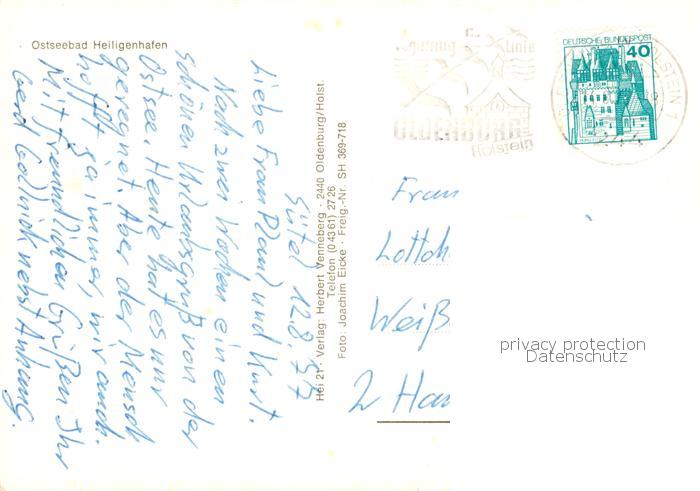 Ostseebad Heiligenhafen
Liebe Frau und Kurt.
Nach zwei Wochen einen
schönen Urlaubsgruß von der
Ostsee. Heute hat es nur
geregnet. Aber der Mensch
hofft ja immer, wir auch.
Mit freundlichen Grüßen Ihr
nebst Anhang.
Hei 21 · Verlag: Herbert Venneberg · 2440 Oldenburg/Holst.
Telefon (0 43 61) 27 26
Foto: Joachim Eicke · Freig.-Nr. SH 369-718
DEUTSCHE BUNDESPOST
40
OLDENBURG
Holstein
Frau
Weiß
2 Ham
privacy protection
Datenschutz